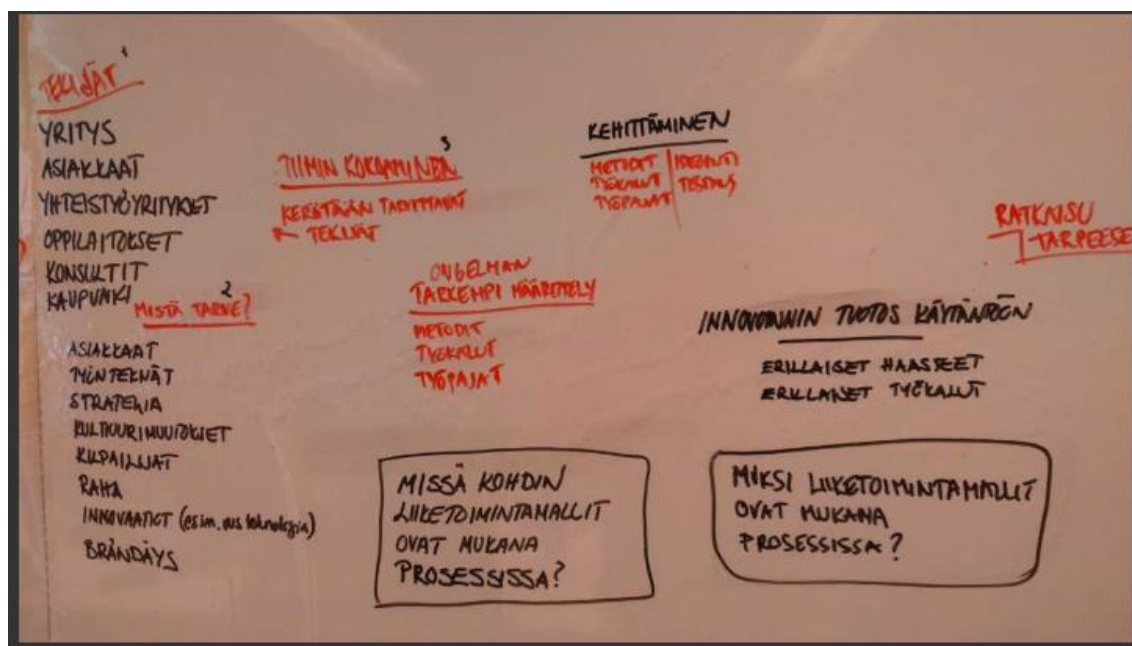 TEKIJÄT 1
YRITYS
ASIAKKAAT
YHTEISTYÖYRITYKSET
OPPILAITOKSET
KONSULTIT
KAUPUNKI
MISTÄ TARVE? 2
ASIAKKAAT
TYÖNTEKIJÄT
STRATEGIA
KULTTUURIMUUTOKSET
KILPAILIJAT
RAHA
INNOVAATIOT (esim. uus teknologia)
BRÄNDÄYS
TIIMIN KOKOAMINEN 3
KERÄTÄÄN TARVITTAVAT
← TEKIJÄT
ONGELMAN
TARKEMPI MÄÄRITTELY
METODIT
TYÖKALUT
TYÖPAJAT
KEHITTÄMINEN
METODIT IDEOINTI
TYÖKALUT TESTAUS
TYÖPAJAT
RATKAISU
TARPEESE
INNOVOINNIN TUOTOS KÄYTÄNTÖÖN
ERILLAISET HAASTEET
ERILLAISET TYÖKALUT
MISSÄ KOHDIN
LIIKETOIMINTAMALLIT
OVAT MUKANA
PROSESSISSA?
MIKSI LIIKETOIMINTAMALLIT
OVAT MUKANA
PROSESSISSA?